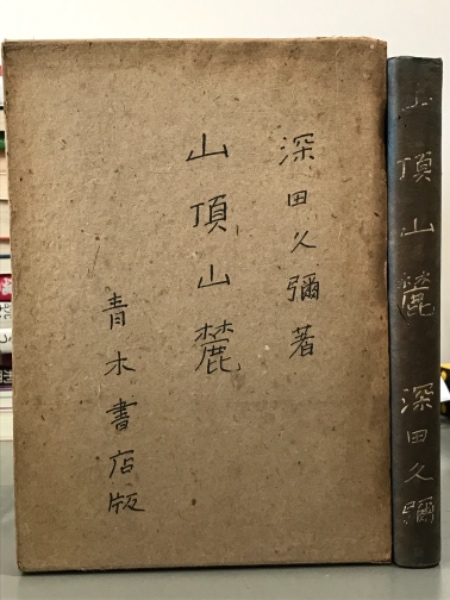 深田久彌著
山頂山麓
青木書店版
山頂山麓 深田久彌